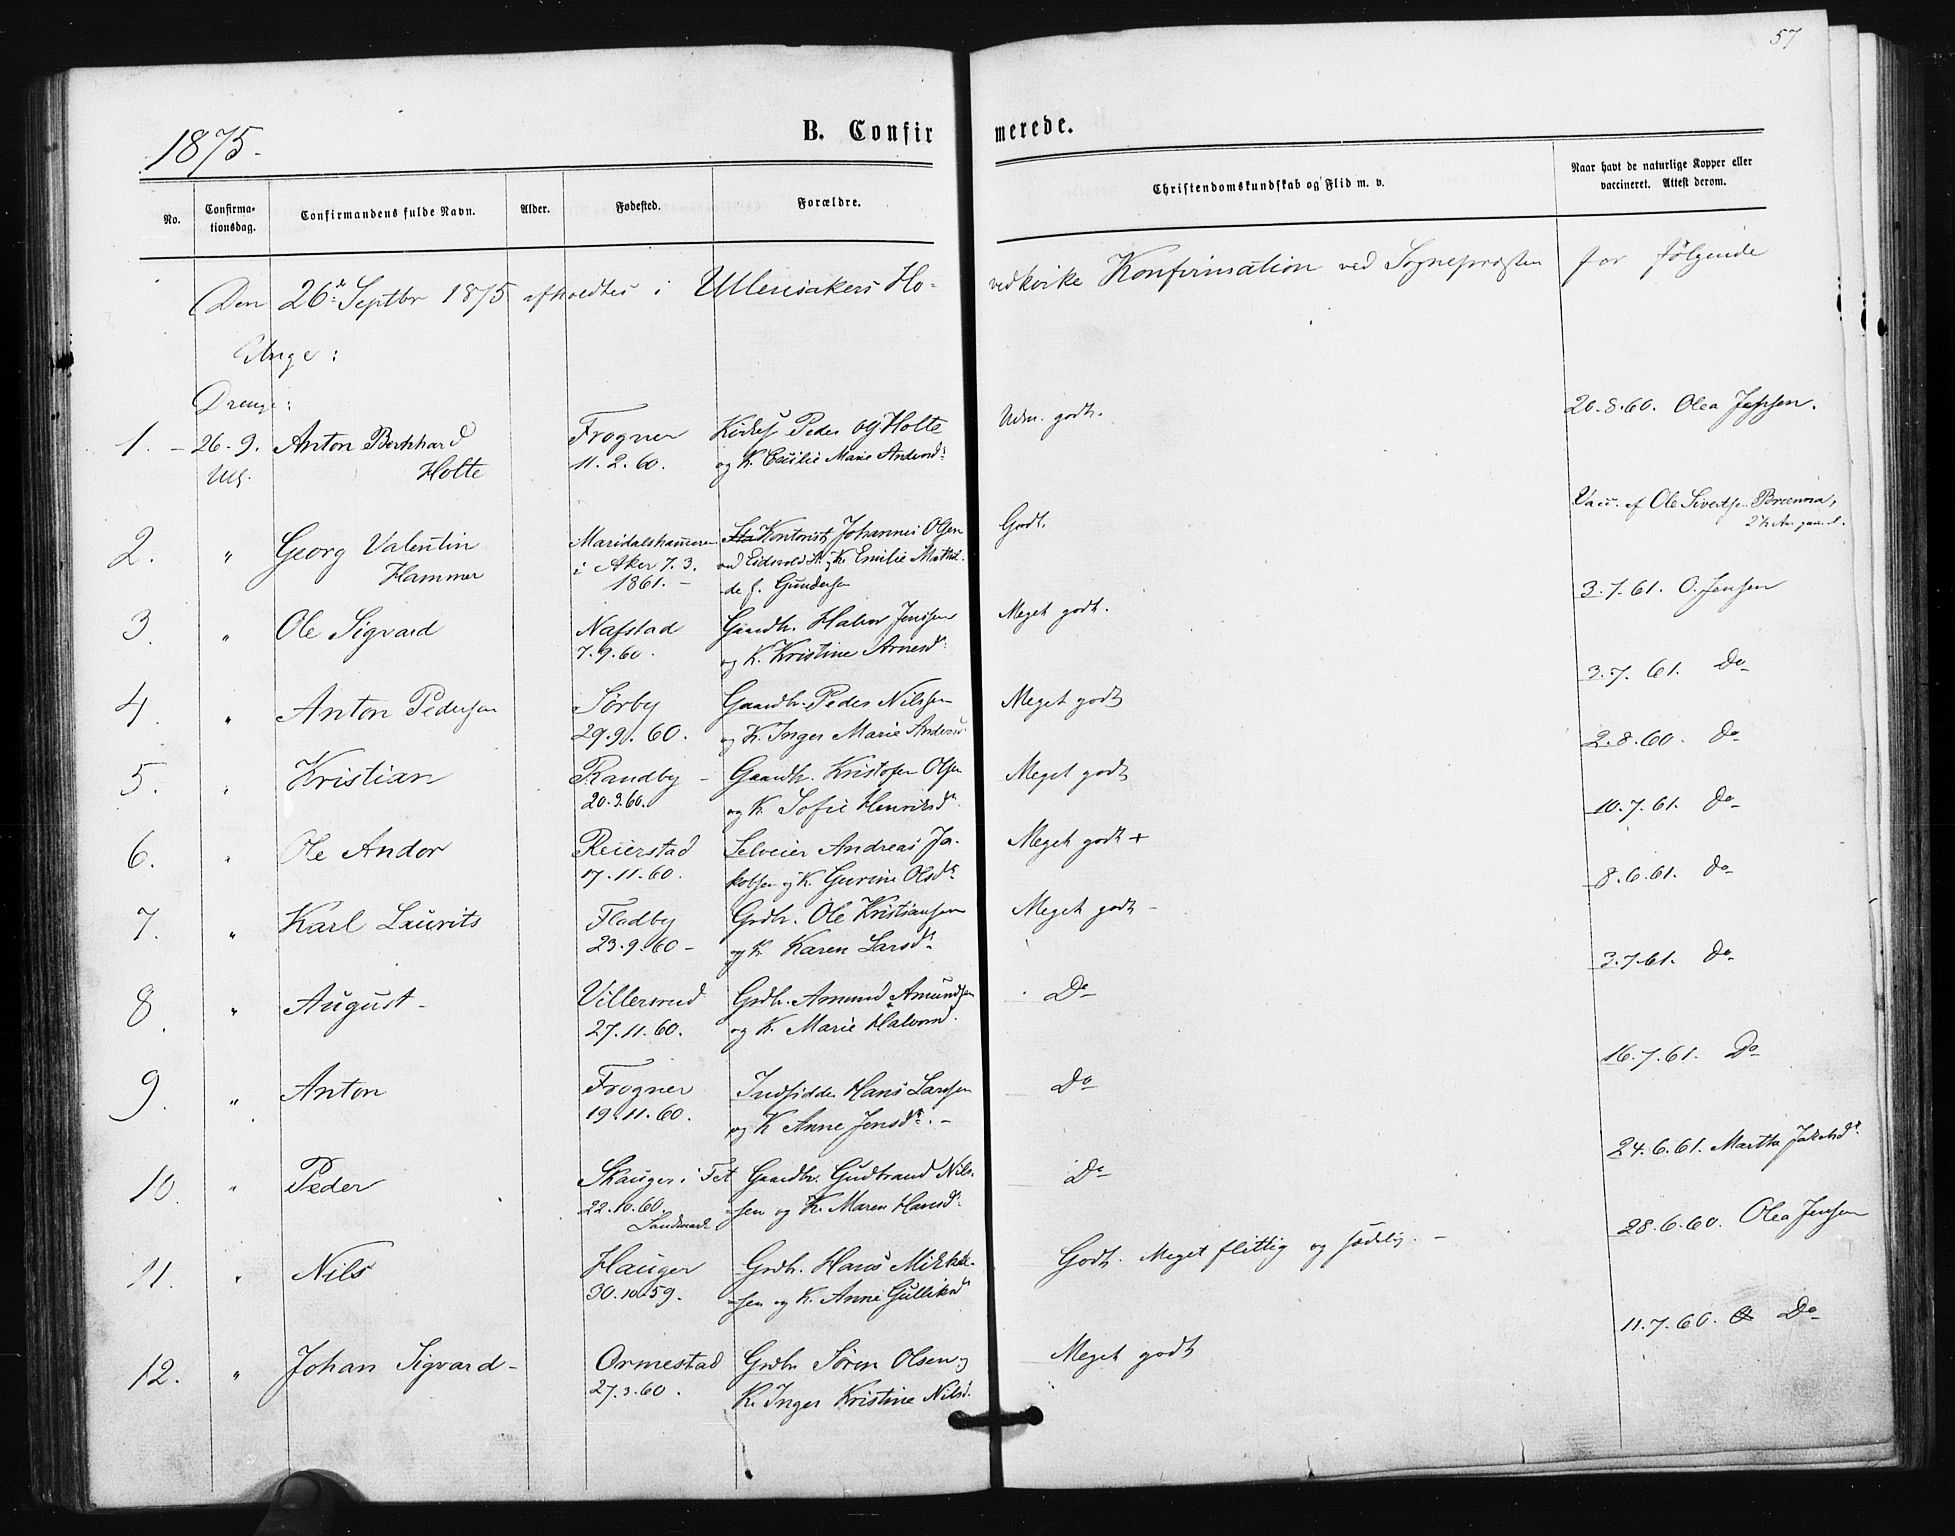 57
1875.
B. Confirmerede.
No.
Confirmationsdag.
Confirmandens fulde Navn.
Alder.
Fødested.
Forældre.
Christendomskundskab og Flid m. v.
Naar havt de naturlige Kopper eller
vaccineret. Attest derom.
Den 26de Septbr 1875 afholdtes i Ullensakers Hovedkirke Konfirmation ved Sognepræsten for følgende
Unge:
Drenge:
1. – 26-9. Anton Bernhard Frogner Kirkes. Peder og Holte Udm. godt. 20-8-60. Olea Jensen.
Ull. Holte 11.2.60. og K. Cecilie Marie Andersdr
2. " Georg Valentin Maridalshammeren Kontorist Johannes Olsen Godt. Vacc. af Ole Sivertsen Brænna,
Hammer i Aker 7.3. ved Eidsvold St. og K. Emilie Mathil- 2½ Aar gammel.
1861.– de f. Gundersen
3. " Ole Sigvard Nafstad Gaardbr. Halvor Jensen Meget godt. 3.7.61. O. Jensen
7.9.60. og K. Kristine Arnesdr
4. " Anton Pedersen Sørby Gaardbr. Peder Nilssen Meget godt 3.7.61. Do
29.9.60. og K. Inger Marie Andersd.
5. " Kristian Randby – Gaardbr. Kristofer Olsen Meget godt 2.8.60. Do
20.9.60. og K. Sofie Henriksdr
6. " Ole Andor Reierstad Selveier Andreas Ja- Meget godt + 10.7.61. Do
17.11.60. kobsen og K. Gurine Olsdr
7. " Karl Laurits Fladby Grdbr. Ole Kristiansen Meget godt – 8.6.61. Do
23.9.60 – og K. Karen Larsdr
8. " August – Villersrud Grdbr. Amund Amundsen Do 3.7.61. Do
27.11.60. og K. Marie Halvorsd.
9. " Anton Frogner Indsidder Hans Larssen Do 16.7.61. Do
19.11.60. og K Anne Jensdr. –
10. " Peder Skauger i Fet Gaardbr. Gudbrand Nils- Do 24.6.61. Martha Jakobsdr
22.10.60. -sen og K. Maren Hansdr
11. " Nils Hauger Grdbr. Hans Mikkel- Godt. Meget flittig og sædelig. – 28.6.60. Olea Jensen
30.10.59. -sen og K. Anne Gulliksd
12. " Johan Sigvard – Ormestad Grdbr Søren Olsen og Meget godt 11.7.60. Do
27.3.60. K. Inger Kristine Nilsd.